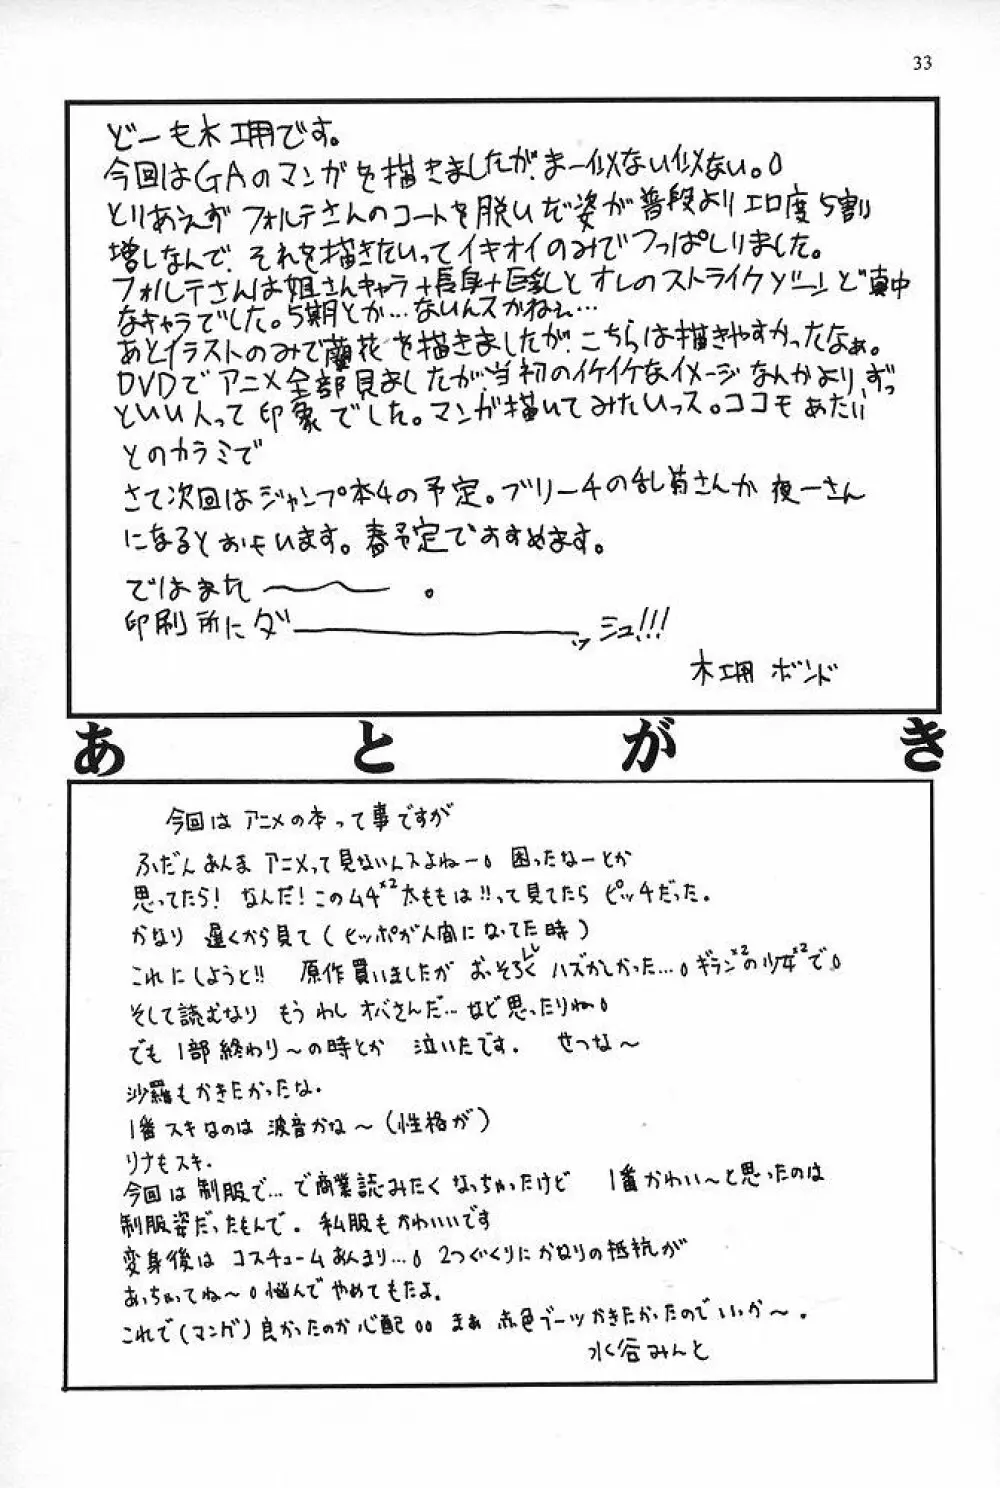 33
どーも木工用です。
今回はGAのマンガを描きましたが、まー似ない似ない。
とりあえず フォルテさんのコートを脱いだ姿が普段よりエロ度5割
増しなんで、それを描きたいってイキオイのみでつっぱしりました。
フォルテさんは姐さんキャラ+長身+巨乳と オレのストライクゾーンど真中
なキャラでした。5期とか…ないんスかねぇ…
あとイラストのみで蘭花を描きましたが、こちらは描きやすかったなぁ。
DVDでアニメ全部見ましたが、当初のイケイケなイメージなんかより、ずっ
といい人って印象でした。マンガ描いてみたいっス。ココモあたり
とのカラミで
さて次回はジャンプ本4の予定。ブリーチの乱菊さんか夜一さん
になるとおもいます。春予定でおすすめます。
ではまた〜。
印刷所にダーッシュ!!!
木工用ボンド
あとがき
今回はアニメの本って事ですが
ふだんあんまアニメって見ないんスよねー。困ったなーとか
思ってたら!なんだ!このムチ×2太ももは!!って見てたらピッチだった。
かなり遅くから見て(ヒッポが人間になってた時)
これにしようと!! 原作買いましたがおっそろしくハズかしかった…。ギラン×2の少女×2で。
そして読むなりもうわしオバさんだ…など思ったりね。
でも1部終わり〜の時とか 泣いたです。 せつな〜
沙羅もかきたかったな.
1番スキなのは波音かな〜(性格が)
リナもスキ.
今回は制服で…で商業読みたくなっちゃったけど 1番かわい〜と思ったのは
制服姿だったもんで。私服もかわいいです
変身後はコスチュームあんまり…。2つぐくりにかなりの抵抗が
あっちゃってね〜。悩んでやめてもたよ.
これで(マング)良かったのか心配。。まぁ赤色ブーツかきたかったのでいいか〜.
水谷みんと